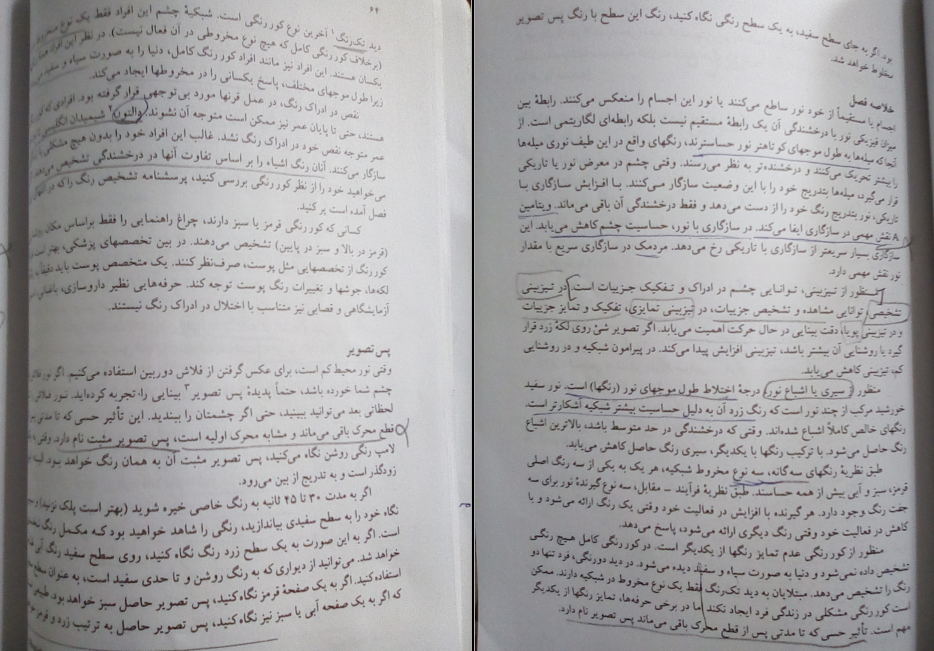 ۶۴
دید تک‌رنگ۱ آخرین نوع کوررنگی است. شبکیهٔ چشم این افراد فقط یک نوع
(برخلاف کوررنگی کامل که هیچ نوع مخروطی در آن فعال نیست). در نظر این افراد
یکسان هستند. این افراد نیز مانند افراد کوررنگ کامل، دنیا را به صورت سیاه و سفید
زیرا طول موجهای مختلف، پاسخ یکسانی را در مخروطها ایجاد می‌کند.
نقص در ادراک رنگ، در عمل قرنها مورد بی‌توجهی قرار گرفته بود. افرادی که
هستند، حتی تا پایان عمر نیز ممکن است متوجه آن نشوند. دالتون۲ شیمیدان انگلیسی
عمر متوجه نقص خود در ادراک رنگ نشد. غالب این افراد خود را بدون هیچ مشکلی
سازگار می‌کنند. آنان رنگ اشیاء را بر اساس تفاوت آنها در درخشندگی تشخیص می‌دهند
می‌خواهید خود را از نظر کوررنگی بررسی کنید، پرسشنامه تشخیص رنگ را که در
فصل آمده است پر کنید.
کسانی که کوررنگی قرمز یا سبز دارند، چراغ راهنمایی را فقط براساس مکان
(قرمز در بالا و سبز در پایین) تشخیص می‌دهند. در بین تخصصهای پزشکی، بهتر است
کوررنگ از تخصصهایی مثل پوست، صرف‌نظر کنند. یک متخصص پوست باید دقیقاً به
لکه‌ها، جوشها و تغییرات رنگ پوست توجه کند. حرفه‌هایی نظیر داروسازی،
آزمایشگاهی و قصابی نیز متناسب با اختلال در ادراک رنگ نیستند.
پس تصویر
وقتی نور محیط کم است، برای عکس گرفتن از فلاش دوربین استفاده می‌کنیم. اگر نور فلاش
چشم شما خورده باشد، حتماً پدیدهٔ پس تصویر۳ بینایی را تجربه کرده‌اید. نور فلاش
لحظاتی بعد می‌توانید ببینید، حتی اگر چشمتان را ببندید. این تأثیر حسی که تا مدتی
قطع محرک باقی می‌ماند و مشابه محرک اولیه است، پس تصویر مثبت نام دارد. وقتی به
لامپ رنگی روشن نگاه می‌کنید، پس تصویر مثبت آن به همان رنگ خواهد بود.
زودگذر است و به تدریج از بین می‌رود.
اگر به مدت ۳۰ تا ۴۵ ثانیه به رنگ خاصی خیره شوید (بهتر است پلک نزنید) و
نگاه خود را به سطح سفیدی بیاندازید، رنگی را شاهد خواهید بود که مکمل رنگ
است. اگر به این صورت به یک سطح زرد رنگ نگاه کنید، روی سطح سفید رنگ آبی
خواهد شد. می‌توانید از دیواری که به رنگ روشن و تا حدی سفید است، به عنوان سطح
استفاده کنید. اگر به یک صفحهٔ قرمز نگاه کنید، پس تصویر حاصل سبز خواهد بود. طبیعی
که اگر به یک صفحه آبی یا سبز نیز نگاه کنید، پس تصویر حاصل به ترتیب زرد و قرمز
بود. اگر به جای سطح سفید، به یک سطح رنگی نگاه کنید، رنگ این سطح با رنگ پس تصویر
مخلوط خواهد شد.
خلاصه فصل
اجسام یا مستقیماً از خود نور ساطع می‌کنند یا نور این اجسام را منعکس می‌کنند. رابطهٔ بین
میزان فیزیکی نور با درخشندگی آن یک رابطهٔ مستقیم نیست بلکه رابطه‌ای لگاریتمی است. از
آنجا که میله‌ها به طول موجهای کوتاهتر نور حساسترند، رنگهای واقع در این طیف نوری میله‌ها
را بیشتر تحریک می‌کنند و درخشنده‌تر به نظر می‌رسند. وقتی چشم در معرض نور یا تاریکی
قرار می‌گیرد، میله‌ها بتدریج خود را با این وضعیت سازگار می‌کنند. با افزایش سازگاری با
تاریکی، نور بتدریج رنگ خود را از دست می‌دهد و فقط درخشندگی آن باقی می‌ماند. ویتامین
A نقش مهمی در سازگاری ایفا می‌کند. در سازگاری با نور، حساسیت چشم کاهش می‌یابد. این
سازگاری بسیار سریعتر از سازگاری با تاریکی رخ می‌دهد. مردمک در سازگاری سریع با مقدار
نور نقش مهمی دارد.
منظور از تیزبینی، توانایی چشم در ادراک و تفکیک جزییات است. در تیزبینی
تشخیصی توانایی مشاهده و تشخیص جزییات، در تیزبینی تمایزی، تفکیک و تمایز جزییات
و در تیزبینی پویا، دقت بینایی در حال حرکت اهمیت می‌یابد. اگر تصویر شیٔ روی لکهٔ زرد قرار
گیرد یا روشنایی آن بیشتر باشد، تیزبینی افزایش پیدا می‌کند. در پیرامون شبکیه و در روشنایی
کم، تیزبینی کاهش می‌یابد.
منظور از سیری یا اشباع نور، درجهٔ اختلاط طول موجهای نور (رنگها) است. نور سفید
خورشید مرکب از چند نور است که رنگ زرد آن به دلیل حساسیت بیشتر شبکیه آشکارتر است.
رنگهای خالص کاملاً اشباع شده‌اند. وقتی که درخشندگی در حد متوسط باشد، بالاترین اشباع
رنگ حاصل می‌شود. با ترکیب رنگها با یکدیگر، سیری رنگ حاصل کاهش می‌یابد.
طبق نظریهٔ رنگهای سه‌گانه، سه نوع مخروط شبکیه، هر یک به یکی از سه رنگ اصلی
قرمز، سبز و آبی بیش از همه حساسند. طبق نظریهٔ فرآیند - مقابل، سه نوع گیرندهٔ نور برای سه
جفت رنگ وجود دارد. هر گیرنده با افزایش در فعالیت خود وقتی یک رنگ ارائه می‌شود و یا
کاهش در فعالیت خود وقتی رنگ دیگری ارائه می‌شود، پاسخ می‌دهد.
منظور از کوررنگی عدم تمایز رنگها از یکدیگر است. در کوررنگی کامل هیچ رنگی
تشخیص داده نمی‌شود و دنیا به صورت سیاه و سفید دیده می‌شود. در دید دورنگی، فرد تنها دو
رنگ را تشخیص می‌دهد. مبتلایان به دید تک‌رنگ فقط یک نوع مخروط در شبکیه دارند. ممکن
است کوررنگی مشکلی در زندگی فرد ایجاد نکند اما در برخی حرفه‌ها، تمایز رنگها از یکدیگر
مهم است. تأثیر حسی که تا مدتی پس از قطع محرک باقی می‌ماند پس تصویر نام دارد.